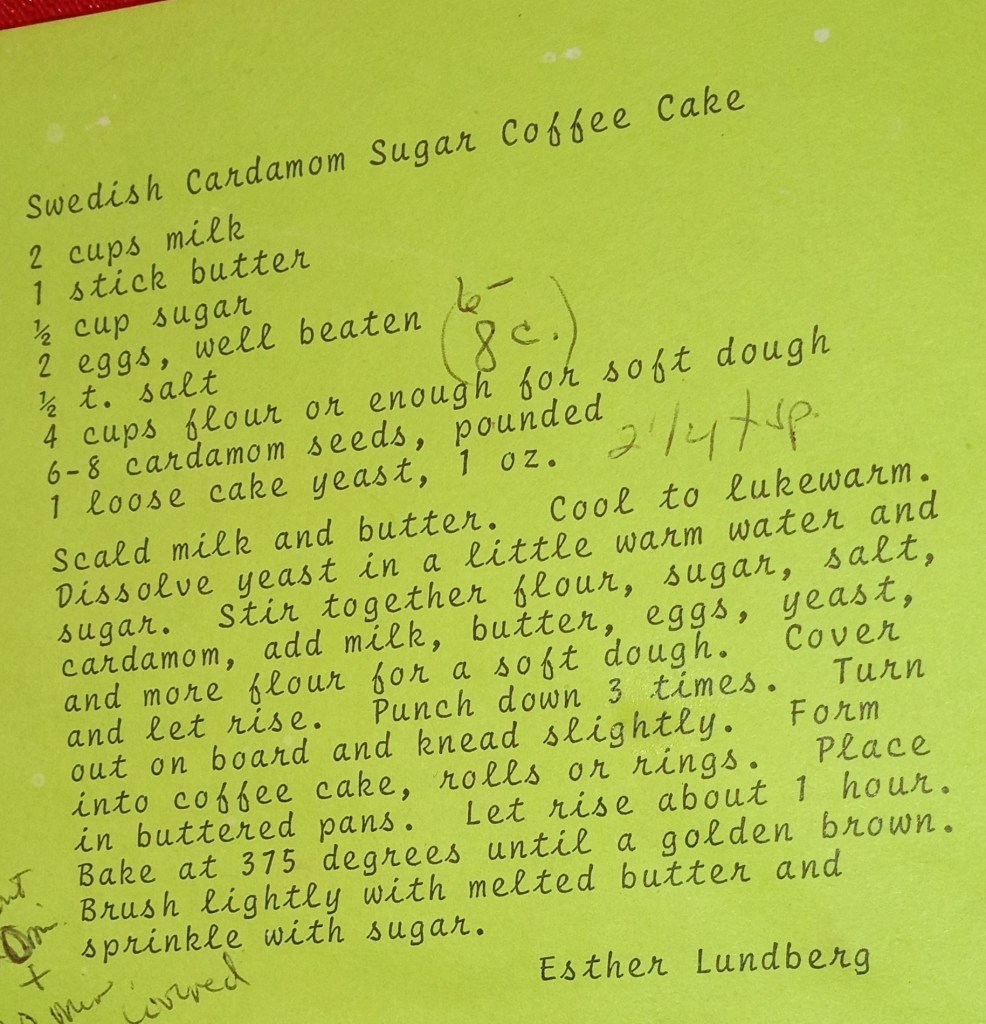 Swedish Cardamom Sugar Coffee Cake
2 cups milk
1 stick butter
½ cup sugar
2 eggs, well beaten
(6-
8 c.)
½ t. salt
4 cups flour or enough for soft dough
6-8 cardamom seeds, pounded
1 loose cake yeast, 1 oz.
2 1/4 tsp.
Scald milk and butter. Cool to lukewarm.
Dissolve yeast in a little warm water and
sugar. Stir together flour, sugar, salt,
cardamom, add milk, butter, eggs, yeast,
and more flour for a soft dough. Cover
and let rise. Punch down 3 times. Turn
out on board and knead slightly. Form
into coffee cake, rolls or rings. Place
in buttered pans. Let rise about 1 hour.
Bake at 375 degrees until a golden brown.
Brush lightly with melted butter and
sprinkle with sugar.
Esther Lundberg
+
covered